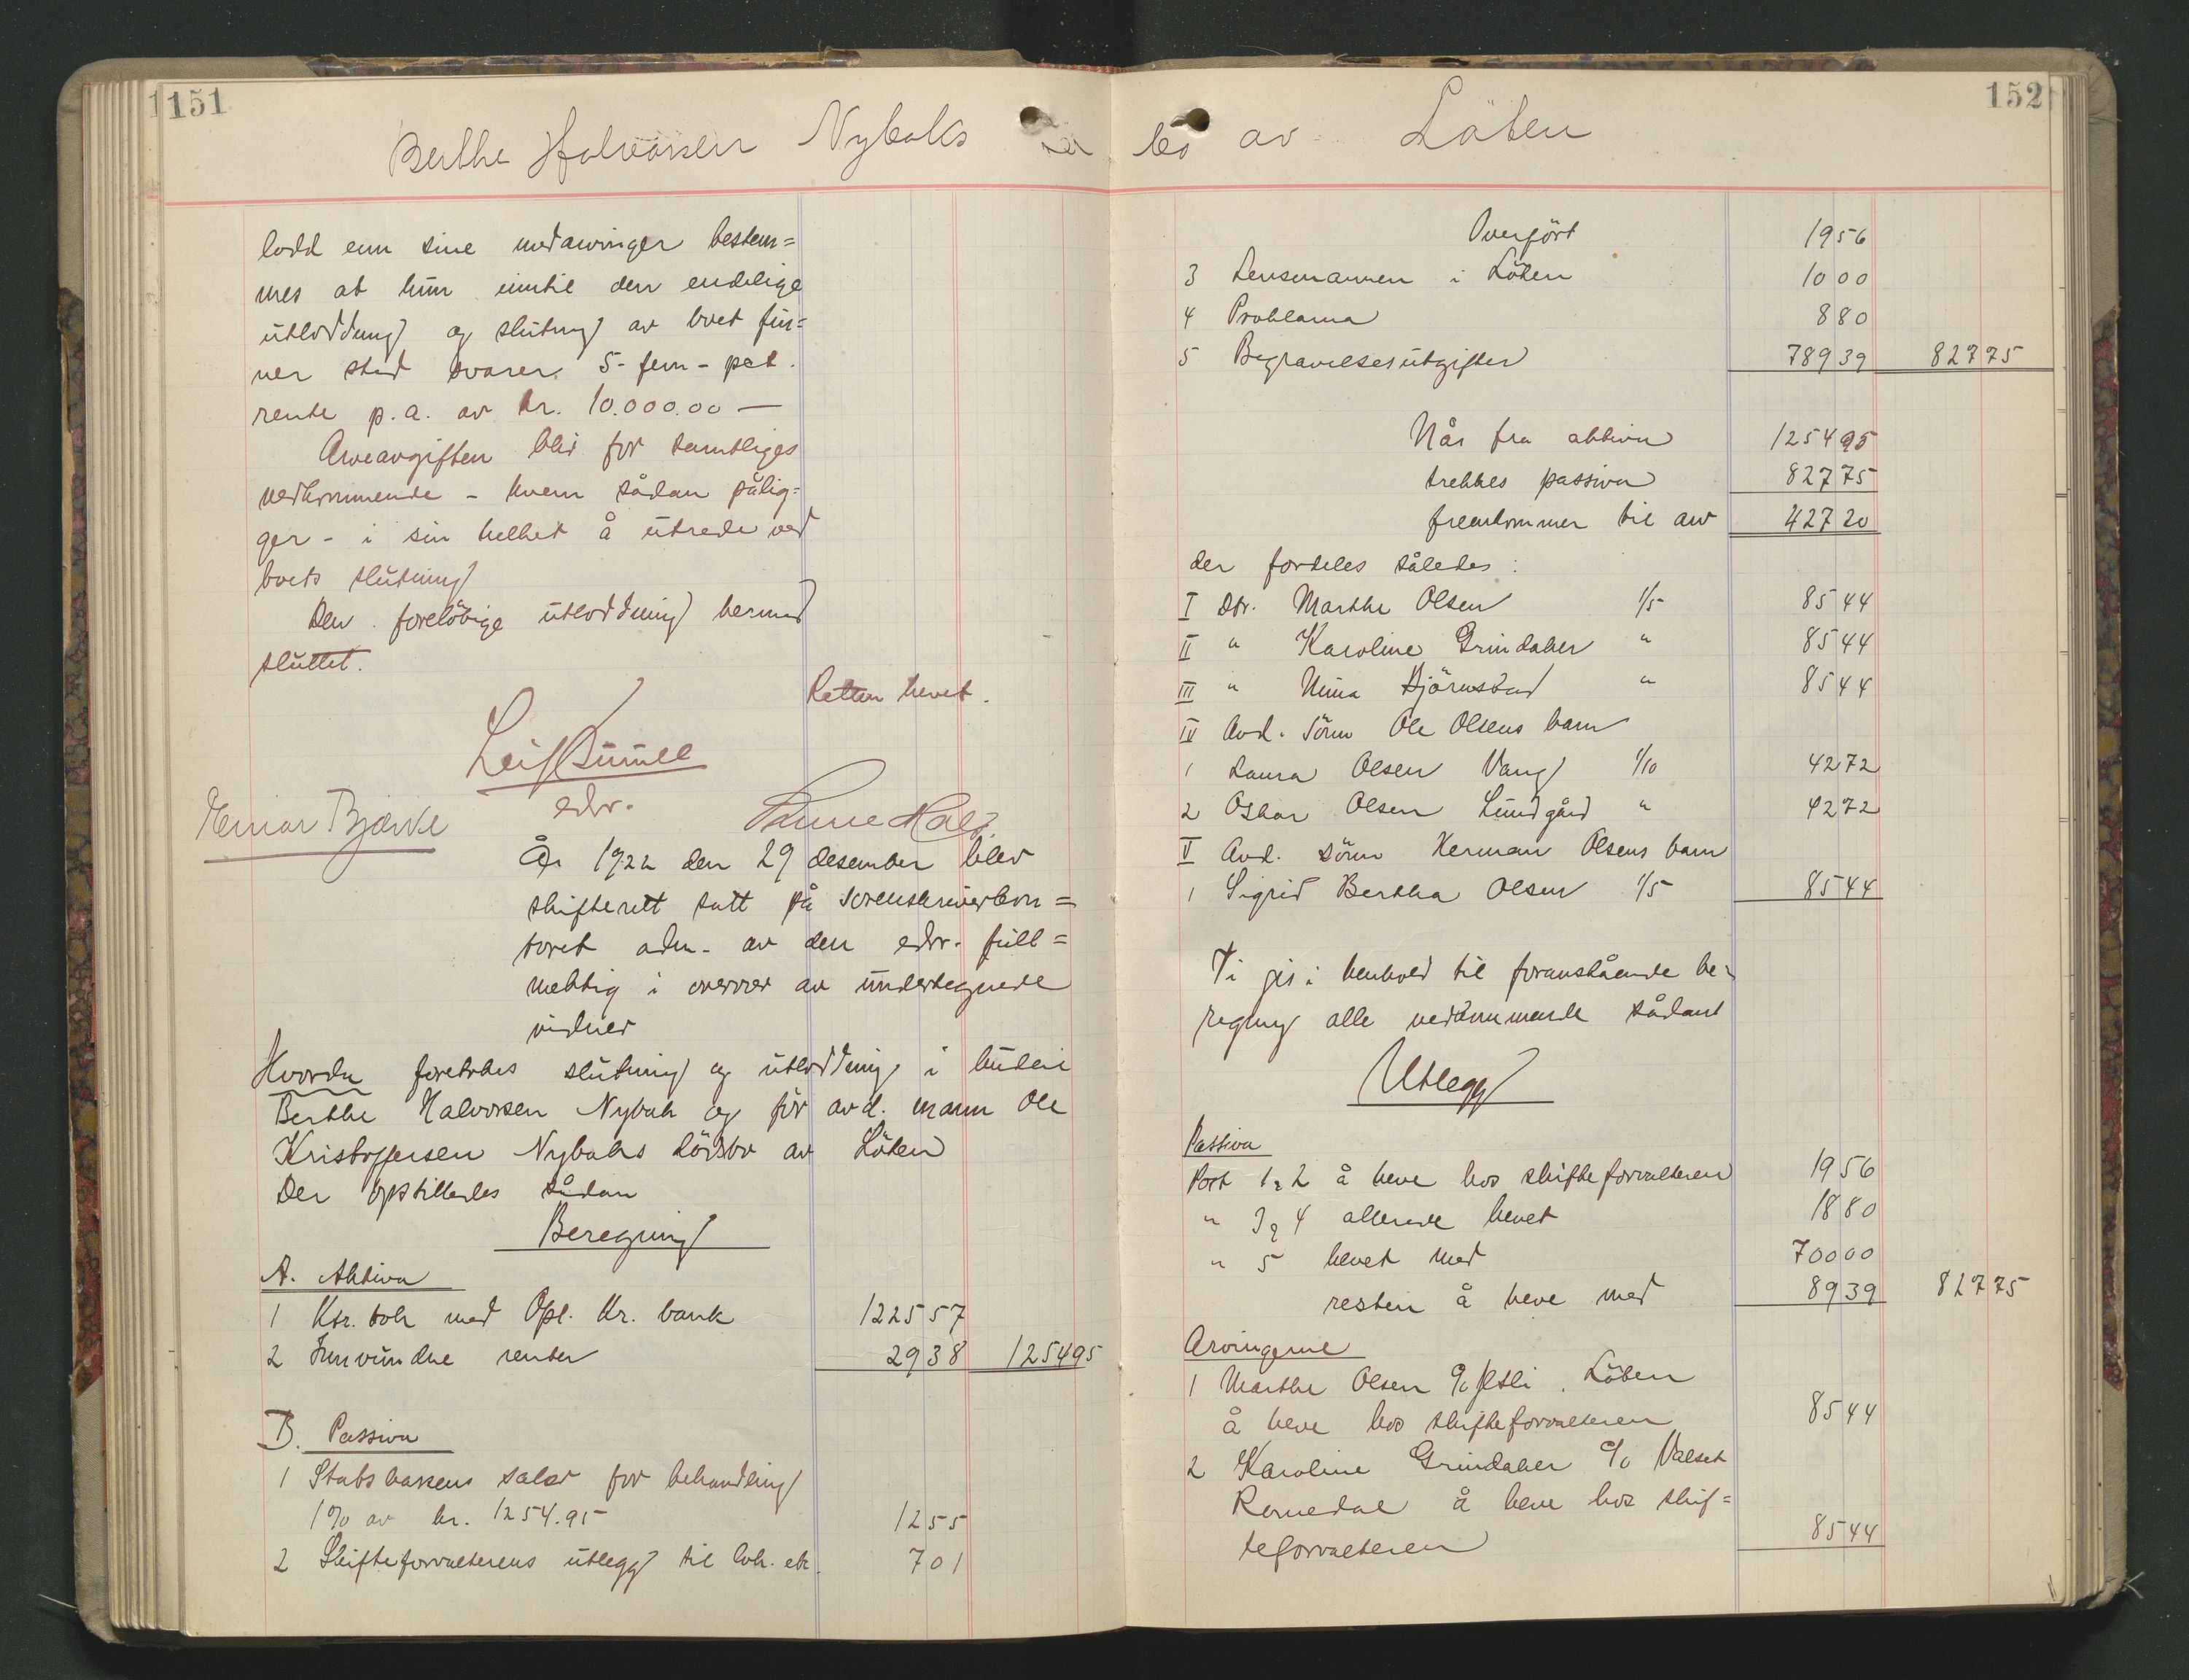 151
Berthe Halvorsen Nybaks
lodd enn sine medarvinger bestem=
mes at hun inntil den endelige
utlodding og slutning av boet fin=
ner sted svarer 5-fem-pct.
rente p.a. av kr. 10.000.00 —
Arveavgiften blir for samtliges
vedkommende - hvem sådan pålig=
ger - i sin helhet å utrede ved
boets slutning
Den foreløbige utlodding hermed
sluttet.
Retten hevet.
Leif
edsv.
Einar Bjørke
År 1922 den 29 desember blev
skifterett satt på sorenskriverkon=
toret adm. av den edsv. full=
mektig i overvær av undertegnede
vidner
Hvorda foretokes slutning og utlodding i budeie
Berthe Halvorsen Nybak og før avd. mann Ole
Kristoffersen Nybaks dödsbo av Löten
Der opstilledes sådan
Beregning
A. Aktiva
1 Ktr. bok med Opl. Kr. bank 1225 57
2 Innvundne renter 29 38 1254 95
B. Passiva
1 Statskassens salær for behandling
1% av kr. 1254.95 12 55
2 Skifteforvalterens utlegg til bok. etc. 7 01
152
bo av Löten
Overfört 19 56
3 Lensmannen i Löten 10 00
4 Proklama 8 80
5 Begravelsesutgifter 789 39 827 75
Når fra aktiva 1254 95
trekkes passiva 827 75
fremkommer til arv 427 20
der fordeles således:
I Dtr. Marthe Olsen 1/5 85 44
II " Karoline Grindaker " 85 44
III " Nina Bjørnstad " 85 44
IV Avd. sönn Ole Olsens barn
1 Laura Olsen Vang 1/10 42 72
2 Oskar Olsen Lundgård " 42 72
V Avd. sönn Herman Olsens barn
1 Sigrid Bertha Olsen 1/5 85 44
Ti gis i henhold til foranstående be-
regning alle vedkommende sådant
Utlegg
Passiva
Post 1 & 2 å heve hos skifteforvalteren 19 56
" 3 & 4 allerede hevet 18 80
" 5 hevet med 700 00
resten å heve med 89 39 827 75
Arvingerne
1 Marthe Olsen c/o Løten
å heve hos skifteforvalteren 85 44
2 Karoline Grindaker c/o Valset
Romedal å heve hos skif=
teforvalteren 85 44